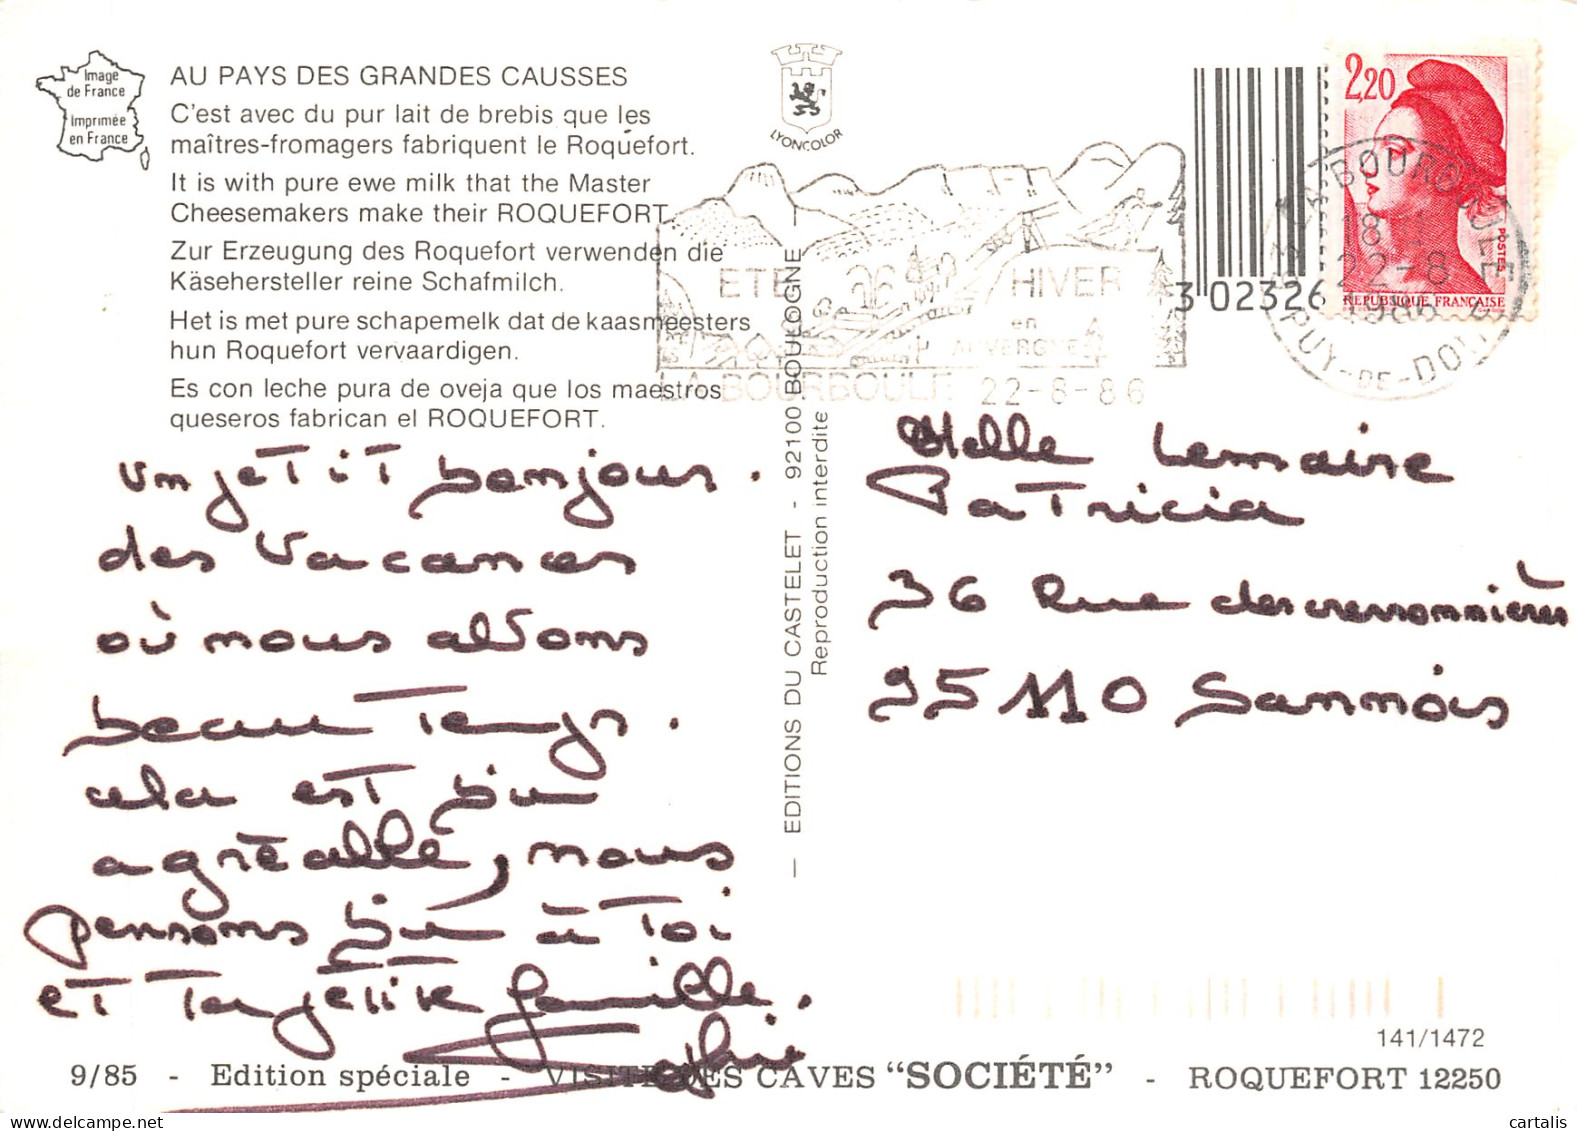 Image
de France
Imprimée
en France
AU PAYS DES GRANDES CAUSSES
C'est avec du pur lait de brebis que les
maîtres-fromagers fabriquent le Roquefort.
It is with pure ewe milk that the Master
Cheesemakers make their ROQUEFORT.
Zur Erzeugung des Roquefort verwenden die
Käsehersteller reine Schafmilch.
Het is met pure schapemelk dat de kaasmeesters
hun Roquefort vervaardigen.
Es con leche pura de oveja que los maestros
queseros fabrican el ROQUEFORT.
un petit bonjour.
des Vacances
où nous avons
beau Temps.
cela est bien
agréable, nous
pensons bien à Toi
et Ta petite famille.
Sophie
LYONCOLOR
ETE HIVER
en
AUVERGNE
LA BOURBOULE 22-8-86
— EDITIONS DU CASTELET - 92100 BOULOGNE —
Reproduction interdite
3 02326
2,20
POSTES
REPUBLIQUE FRANÇAISE
LA BOURBOULE
18 H
22-8
1986
PUY-DE-DOME
Melle Lemaire
Patricia
36 Rue des cressonnières
95110 Sannois
141/1472
9/85 - Edition spéciale - VISITE DES CAVES "SOCIÉTÉ" - ROQUEFORT 12250
cartalis